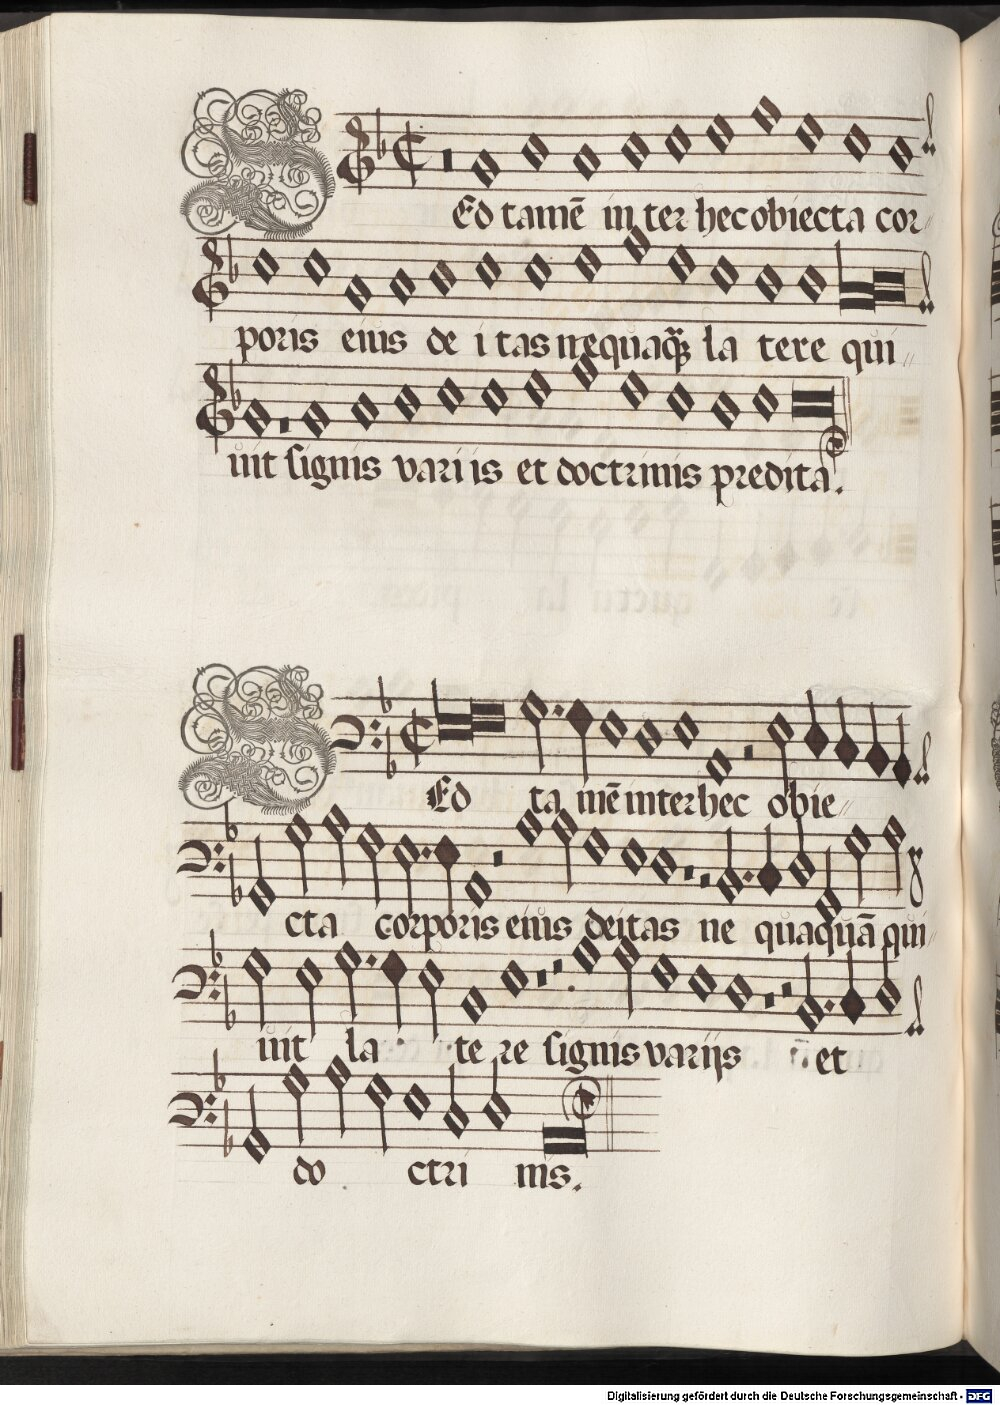 SEd tamē in ter hec obiecta cor
poris eius de i tas nequaqꝫ la tere qui
uit signis variis et doctrinis predita.
SEd ta mē inter hec obie
cta corporis eius deitas ne quaquā qui
uit la te re signis varijs et
do ctri nis.
Digitalisierung gefördert durch die Deutsche Forschungsgemeinschaft - DFG